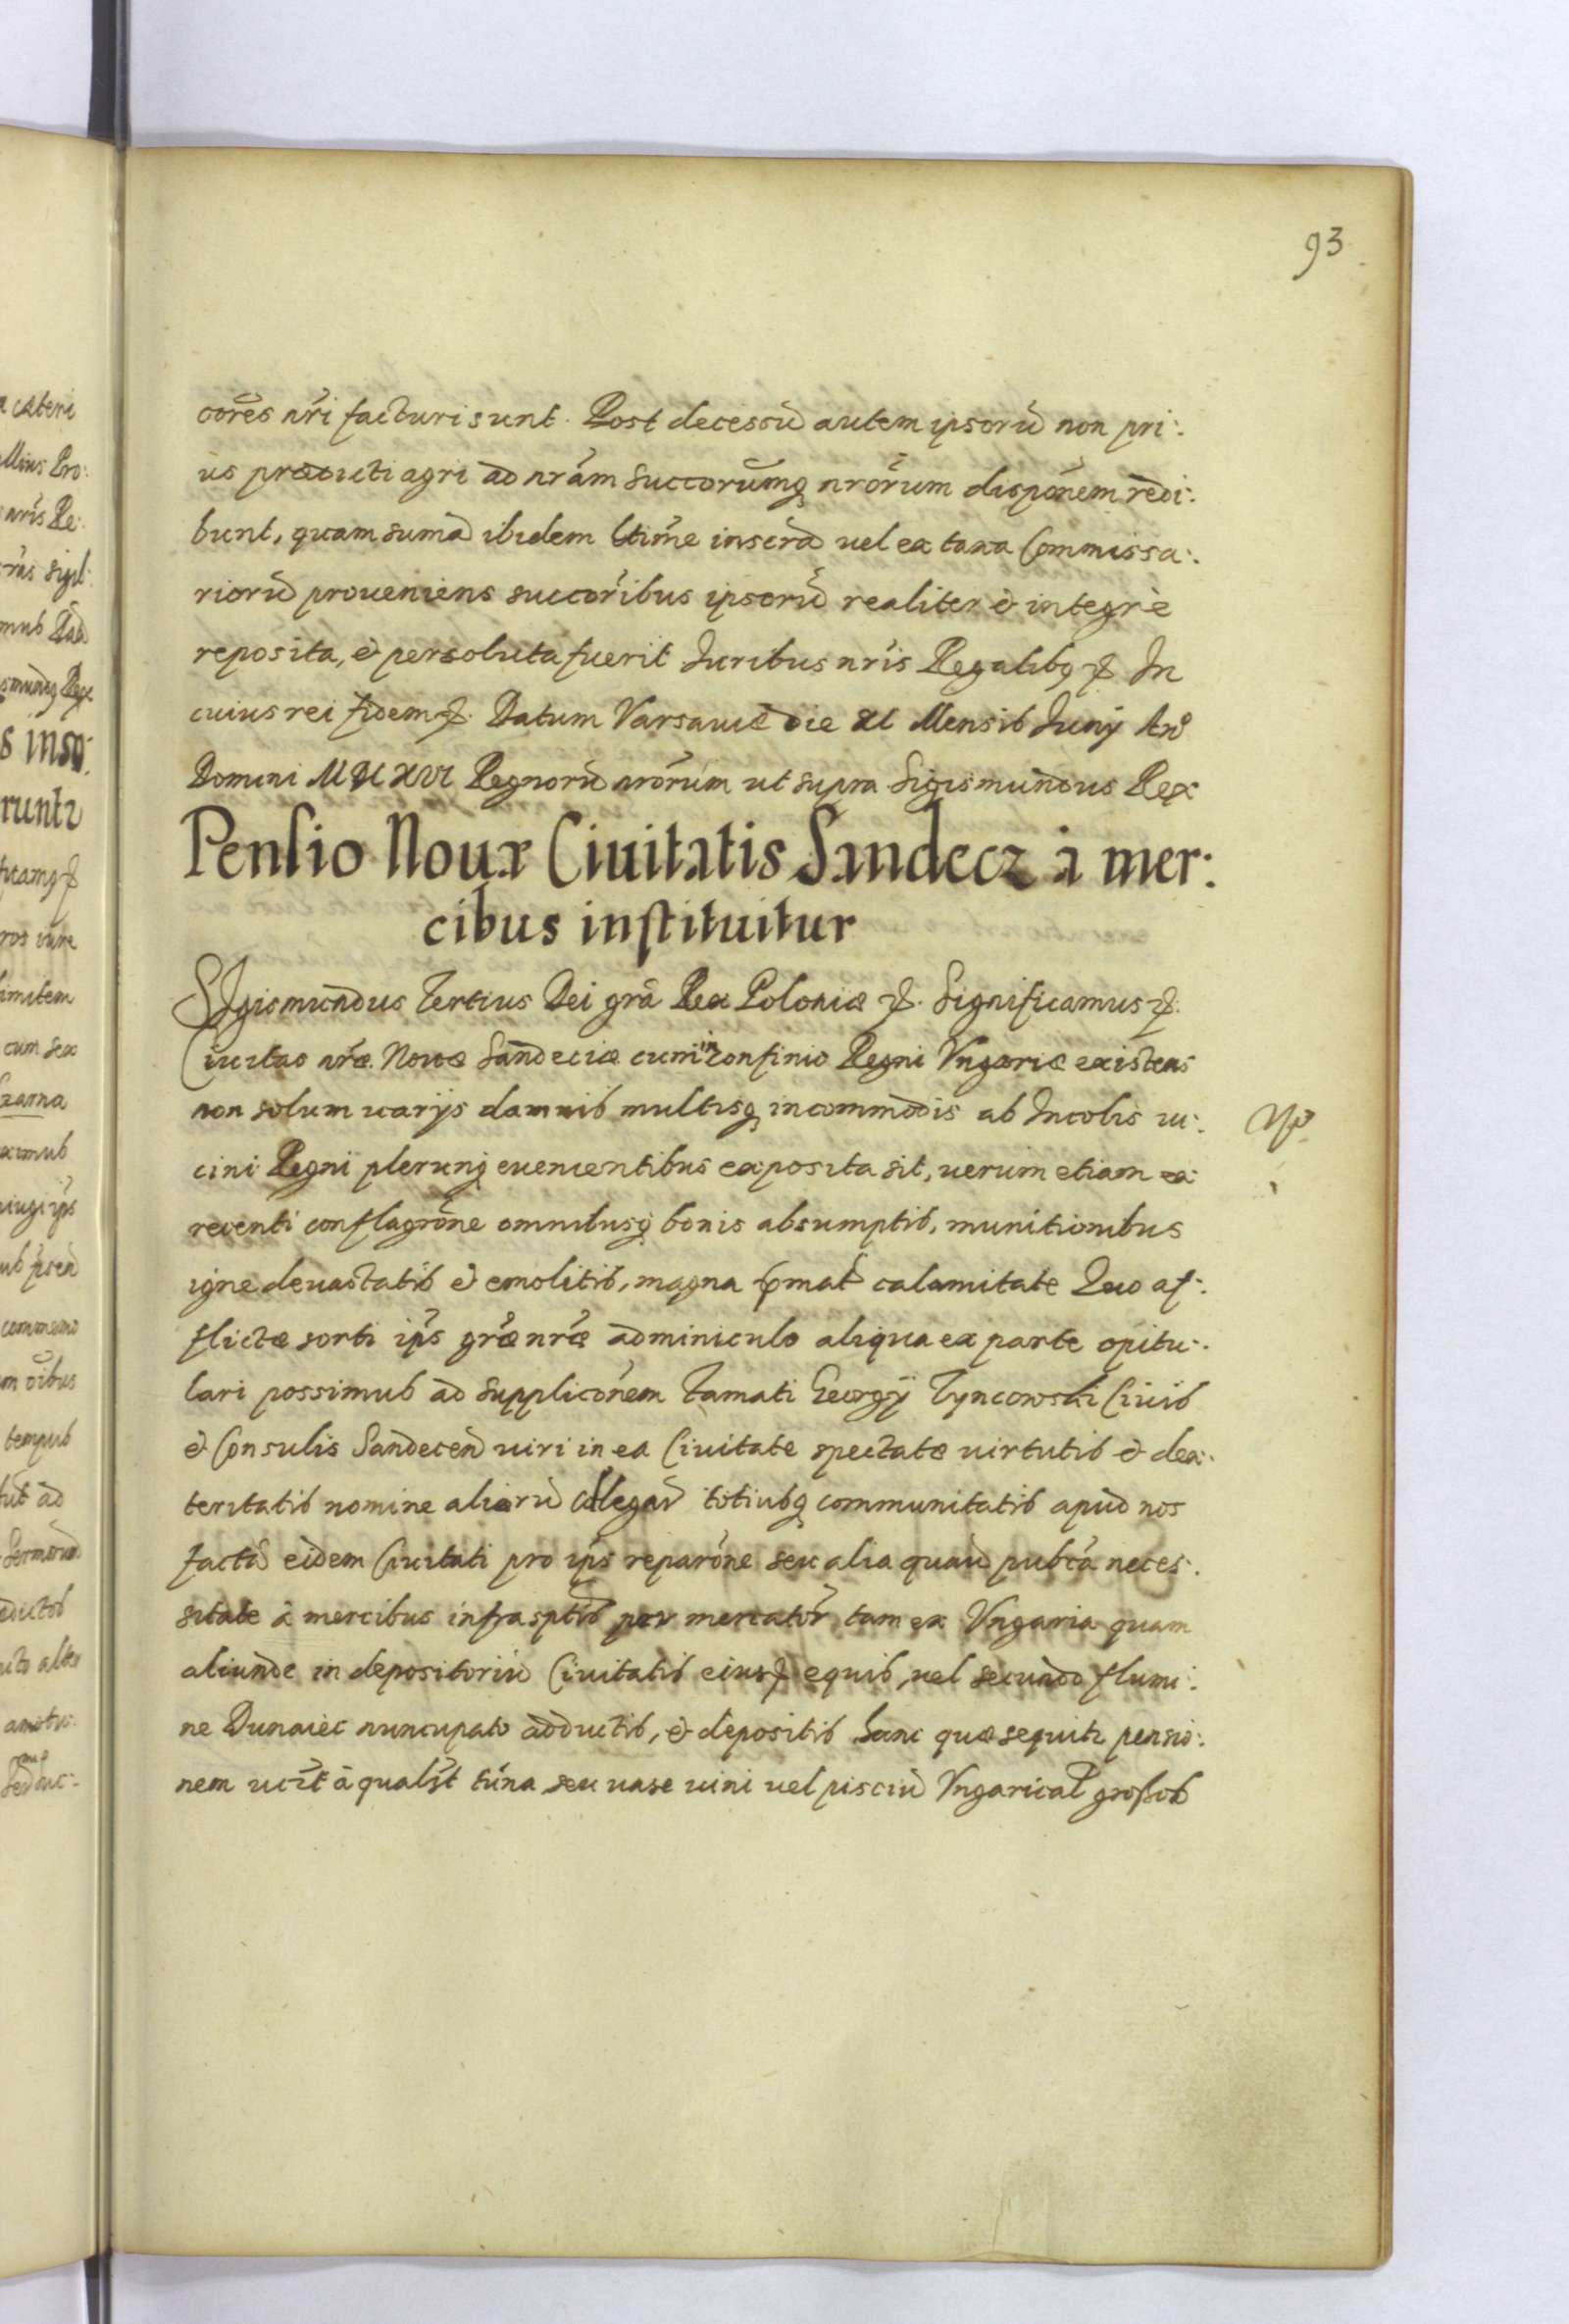 93
cores nri facturi sunt. Post decessu autem ipsoru non pri:
us praedicti agri ad nram succorumq nrorum disponem redi:
bunt, quam suma ibidem ltime inscra vel ex taxa Commissa:
rioru proveniens succoribus ipsoru realiter et integre
reposita, et persoluta fuerit Juribus nris Regalibq etc. In
cuius rei fidem etc. Datum Varsaviae die XI Mensis Junij Ano
Domini MDCXVI Regnoru nrorum ut supra Sigismundus Rex
Pensio Nouæ Ciuitatis Sandecz a mer:
cibus instituitur
SJgismundus Tertius Dei gra Rex Poloniæ etc. Significamus etc.
Ciuitas nræ Nouæ Sandeciæ cum in confinio Regni Vngariæ existens
non solum uarijs damnis multisq incommodis ab Incolis ui:
cini Regni plerunq euenientibus exposita sit, uerum etiam ex
recenti conflagrone omnibusq bonis absumptis, munitionibus
igne deuastatis et emolitis, magna pmat calamitate Quo af:
flictæ sorti ips græ nræ adminiculo aliqua ex parte opitu:
lari possimus ad suppliconem Famati Georgij Tyncowski Ciuis
et Consulis Sandecen uiri in ea Ciuitate spectatæ uirtutis et dex:
teritatis nomine alioru collegar totiusq communitatis apud nos
facta eidem Ciuitati pro ips reparone seu alia quauis publca neces:
sitate a mercibus infrasptis per mercator tam ex Vngaria quam
aliunde in depositoriu Ciuitatis eius equis, uel secundo flumi:
ne Dunaiec nuncupato adductis, et depositis hanc quæ sequitr pensio:
nem ucit a qualit tuna seu uase uini uel pisciu Vngarical grossos